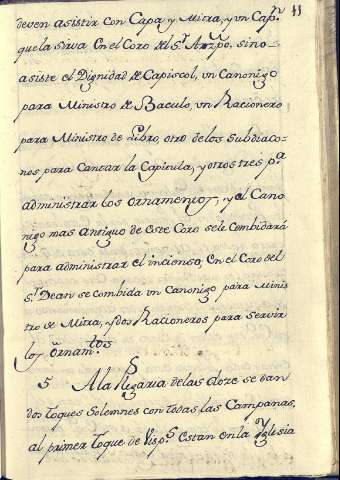 11
deven asistir con Capa, y Mitra, y un Cap.n
que la sirva. En el Coro del S.r Arzpo. sino
asiste el Dignidad de Capiscol, un Canonigo
para Ministro de Baculo, un Racionero
para Ministro de Libro, otro de los Subdiaco-
nos para Cantar la Capitula, y otros tres p.a
administrar los ornamentos, y al Cano
nigo mas antiguo de este Coro se le combidará
para administrar el incienso, En el Coro del
S.r Dean se combida un Canonigo para Minis
tro de Mitra, y dos Racioneros para servir
los Ornam.tos
5 A la Plegaria de las doce se dan
dos Toques Solemnes con todas las Campanas,
al primer Toque de Visp.s estan en la Yglesia